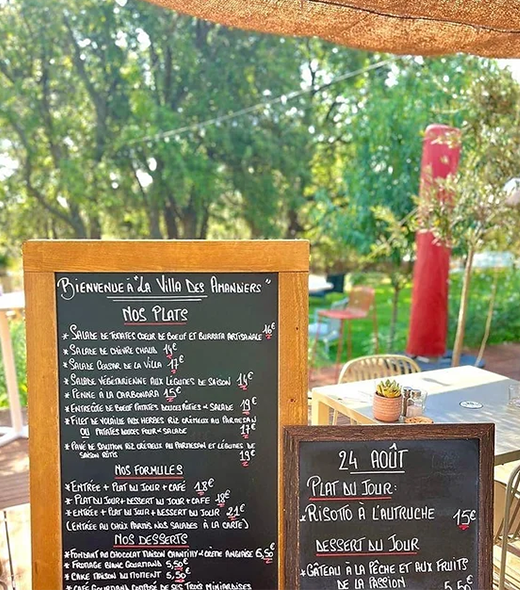 Bienvenue à "La Villa Des Amandiers"
Nos Plats
* Salade de tomates coeur de boeuf et burrata artisanale 16€
* Salade de chèvre chaud 14€
* Salade César de la Villa 17€
* Salade végétarienne aux légumes de saison 14€
* Penne à la carbonara 15€
* Entrecôte de boeuf patates douces rôties & salade 19€
* Filet de volaille aux herbes riz crémeux au parmesan
ou patates douces pour & salade 17€
* Pavé de saumon riz crémeux au parmesan et légumes de
saison rôtis 19€
Nos Formules
* Entrée + plat du jour + café 18€
* Plat du jour + dessert du jour + café 18€
* Entrée + plat du jour + dessert du jour 21€
(entrée au choix parmis nos salades à la carte)
Nos Desserts
* Fondant au chocolat maison & crème anglaise 6,50€
* Fromage blanc gourmand 5,50€
* Cake maison du moment 5,50€
* Café gourmand composé de ses trois miniardises
24 Août
Plat du jour :
* Risotto à l'autruche 15€
Dessert du jour
* Gâteau à la pêche et aux fruits
de la passion 5,50€